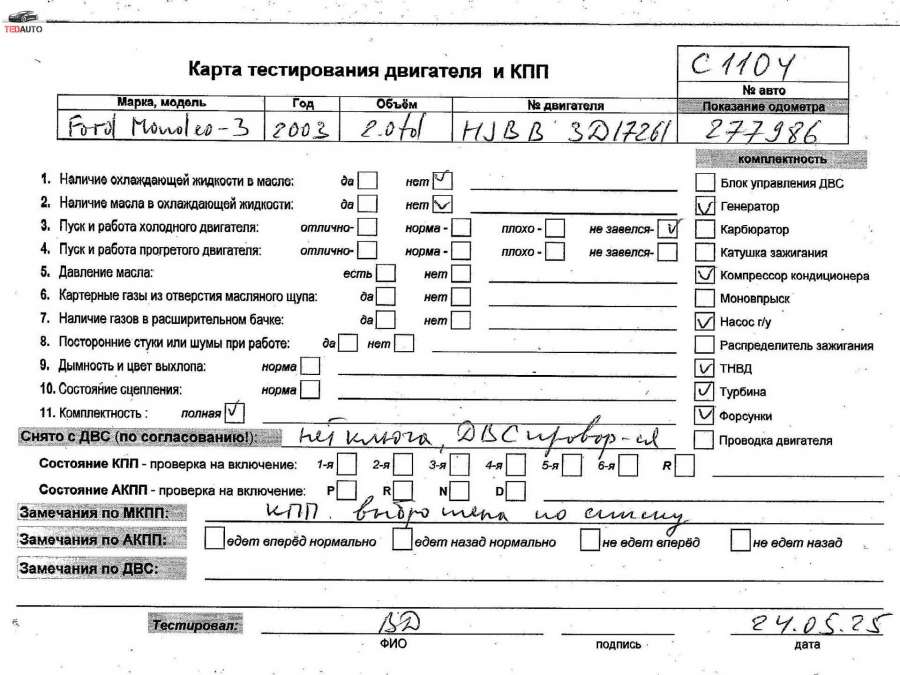 TEDAUTO
Карта тестирования двигателя и КПП
C1104
№ авто
Марка, модель Год Объём № двигателя Показание одометра
Ford Mondeo-3 2003 2.0td HJBB 3D17261 277986
комплектность
1. Наличие охлаждающей жидкости в масле: да нет ✓
Блок управления ДВС
2. Наличие масла в охлаждающей жидкости: да нет ✓
✓ Генератор
3. Пуск и работа холодного двигателя: отлично- норма - плохо - не завелся- ✓
Карбюратор
4. Пуск и работа прогретого двигателя: отлично- норма - плохо - не завелся-
Катушка зажигания
5. Давление масла: есть нет
✓ Компрессор кондиционера
6. Картерные газы из отверстия масляного щупа: да нет
Моновпрыск
7. Наличие газов в расширительном бачке: да нет
✓ Насос г/у
8. Посторонние стуки или шумы при работе: да нет
Распределитель зажигания
9. Дымность и цвет выхлопа: норма
✓ ТНВД
10. Состояние сцепления: норма
✓ Турбина
11. Комплектность : полная ✓
✓ Форсунки
Снято с ДВС (по согласованию!): нет ключа, ДВС провор-ся
Проводка двигателя
Состояние КПП - проверка на включение: 1-я 2-я 3-я 4-я 5-я 6-я R
Состояние АКПП - проверка на включение: P R N D
Замечания по МКПП: КПП. выбро по
Замечания по АКПП: едет вперёд нормально едет назад нормально не едет вперёд не едет назад
Замечания по ДВС:
Тестировал: ВД 24.05.25
ФИО подпись дата